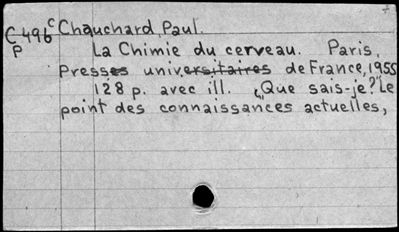 C 496 c Chauchard, Paul.
P
La Chimie du cerveau. Paris,
Presses universitaires de France, 1955
128 p. avec ill. „Que sais-je?" Le
point des connaissances actuelles,